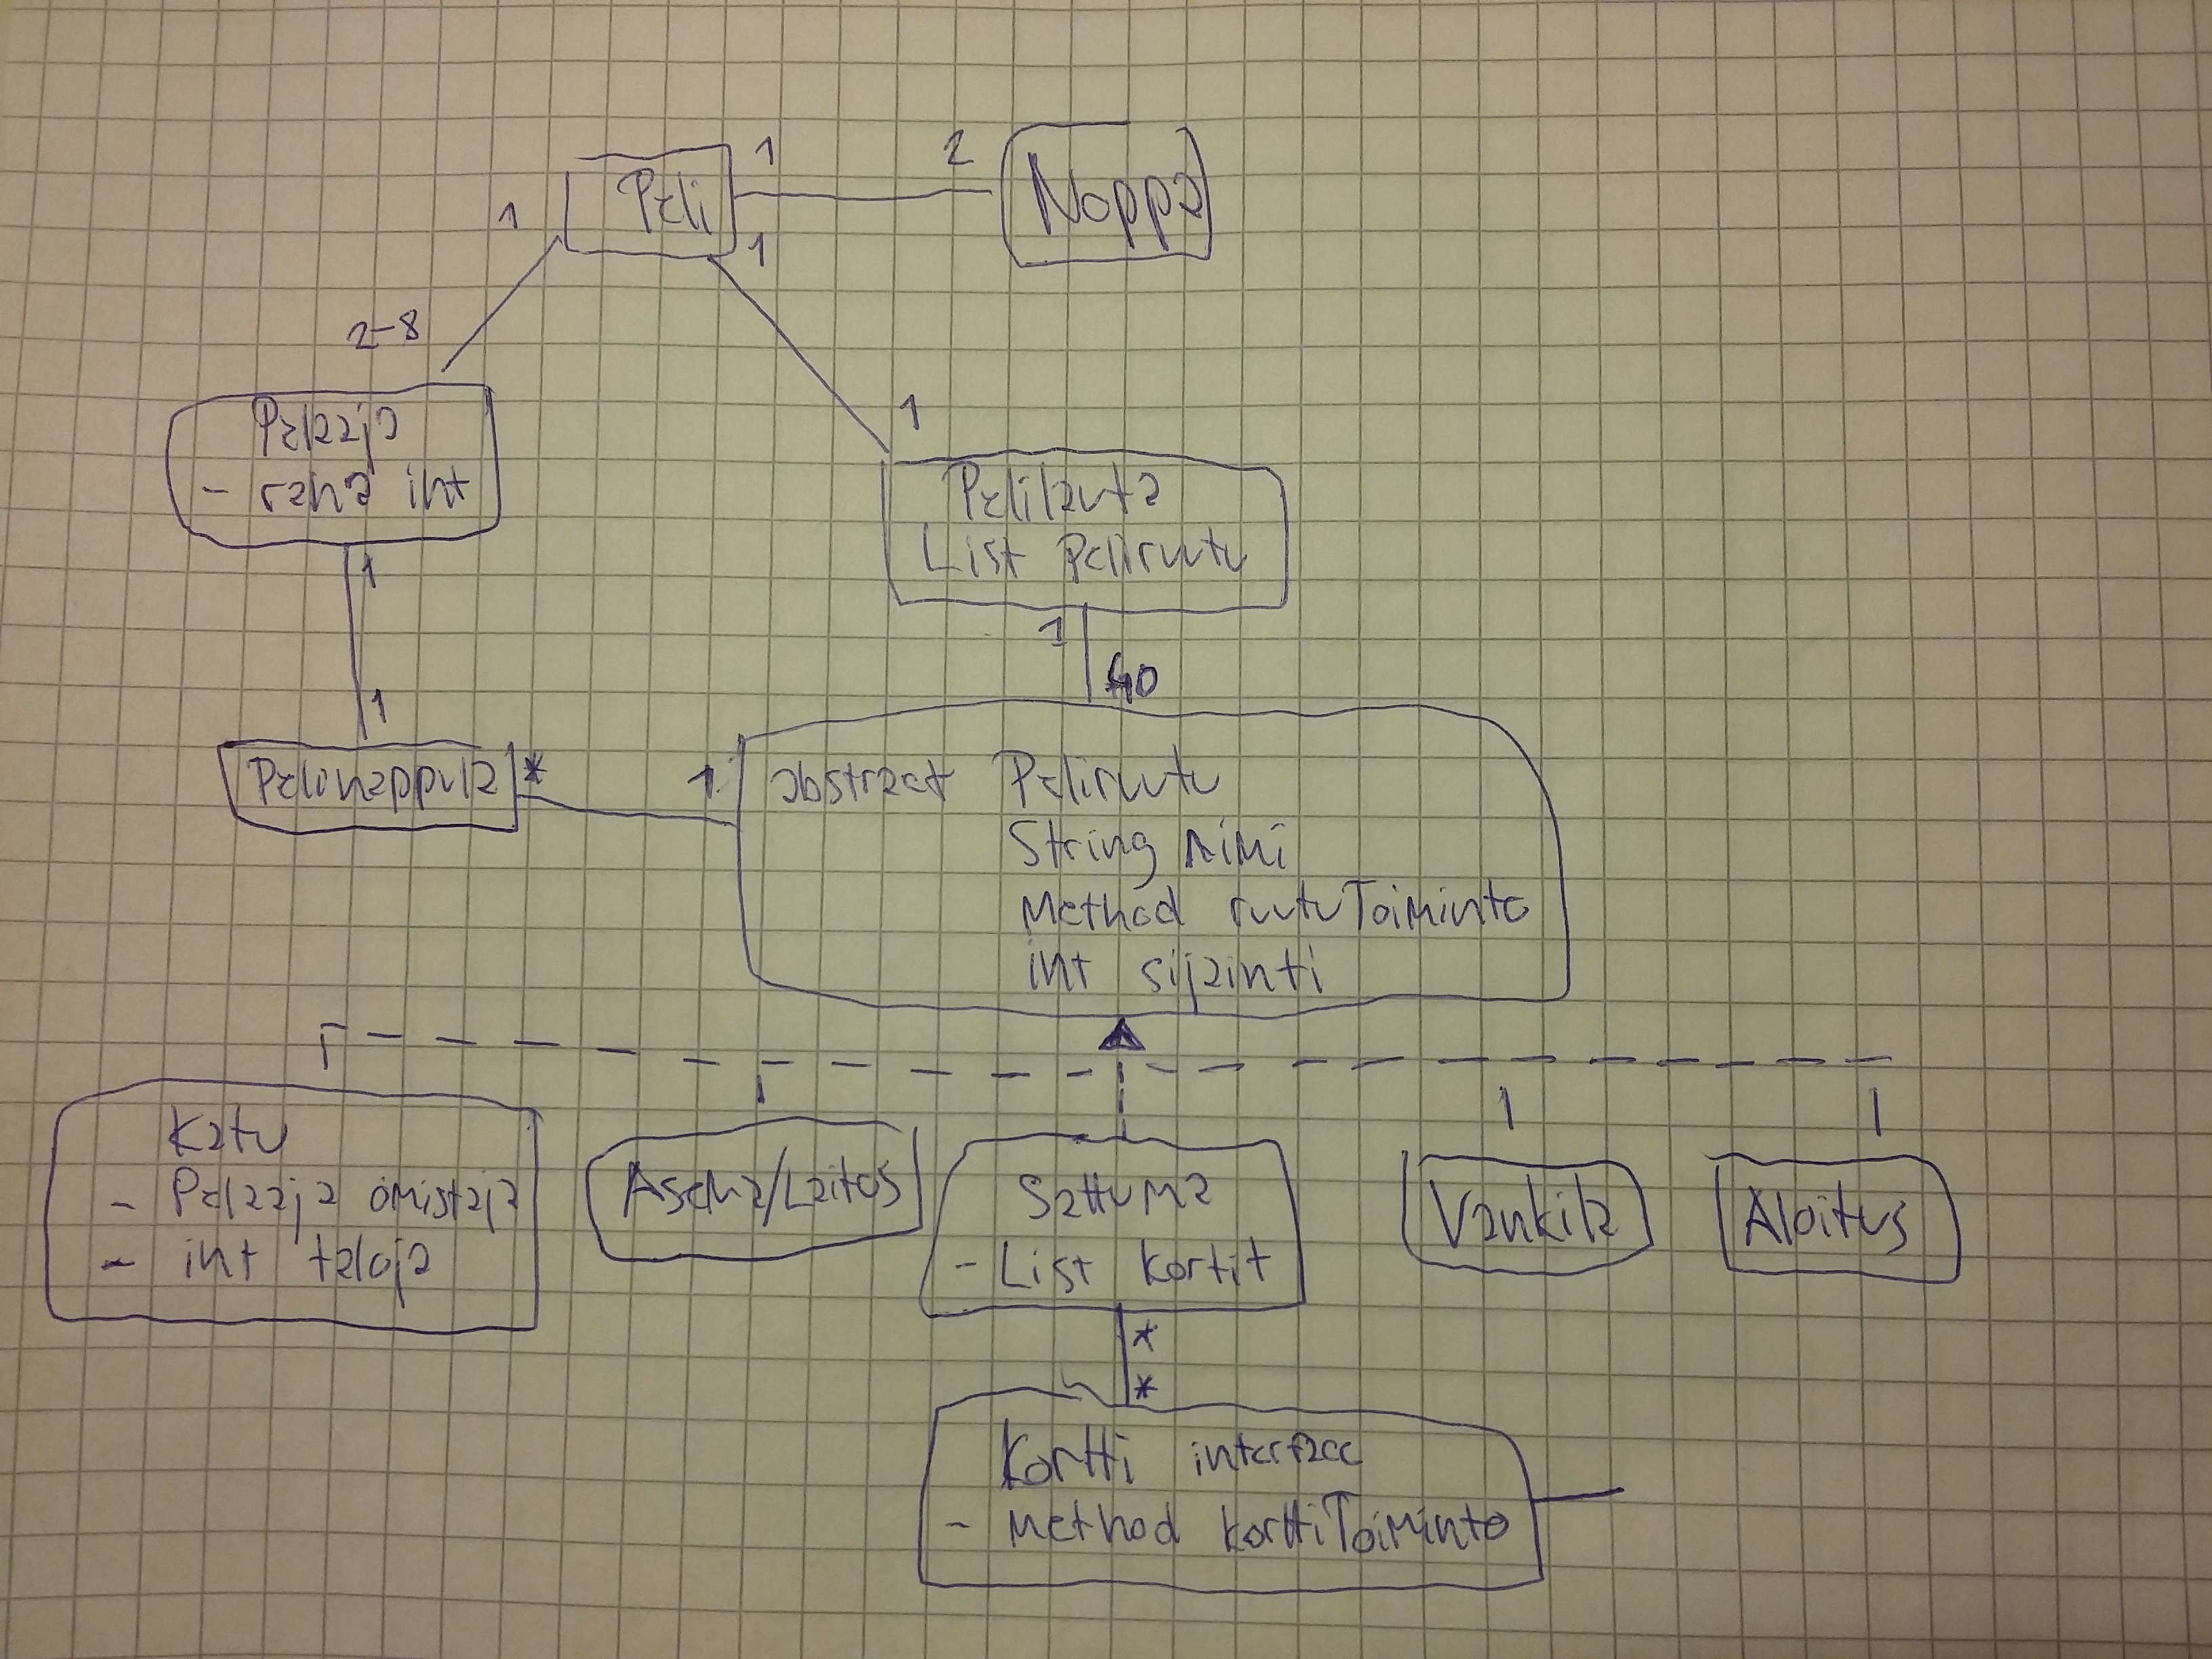 Peli
1
2
Noppa
1
1
2-8
1
Pelaaja
- raha int
Pelilauta
List Peliruutu
1
1
40
1
Pelinappula
*
1
abstract Peliruutu
String nimi
Method ruutuToiminto
int sijainti
Katu
- Pelaaja omistaja
- int taloja
Asema/Laitos
Sattuma
- List kortit
Vankila
Aloitus
*
*
Kortti interface
- Method korttiToiminto